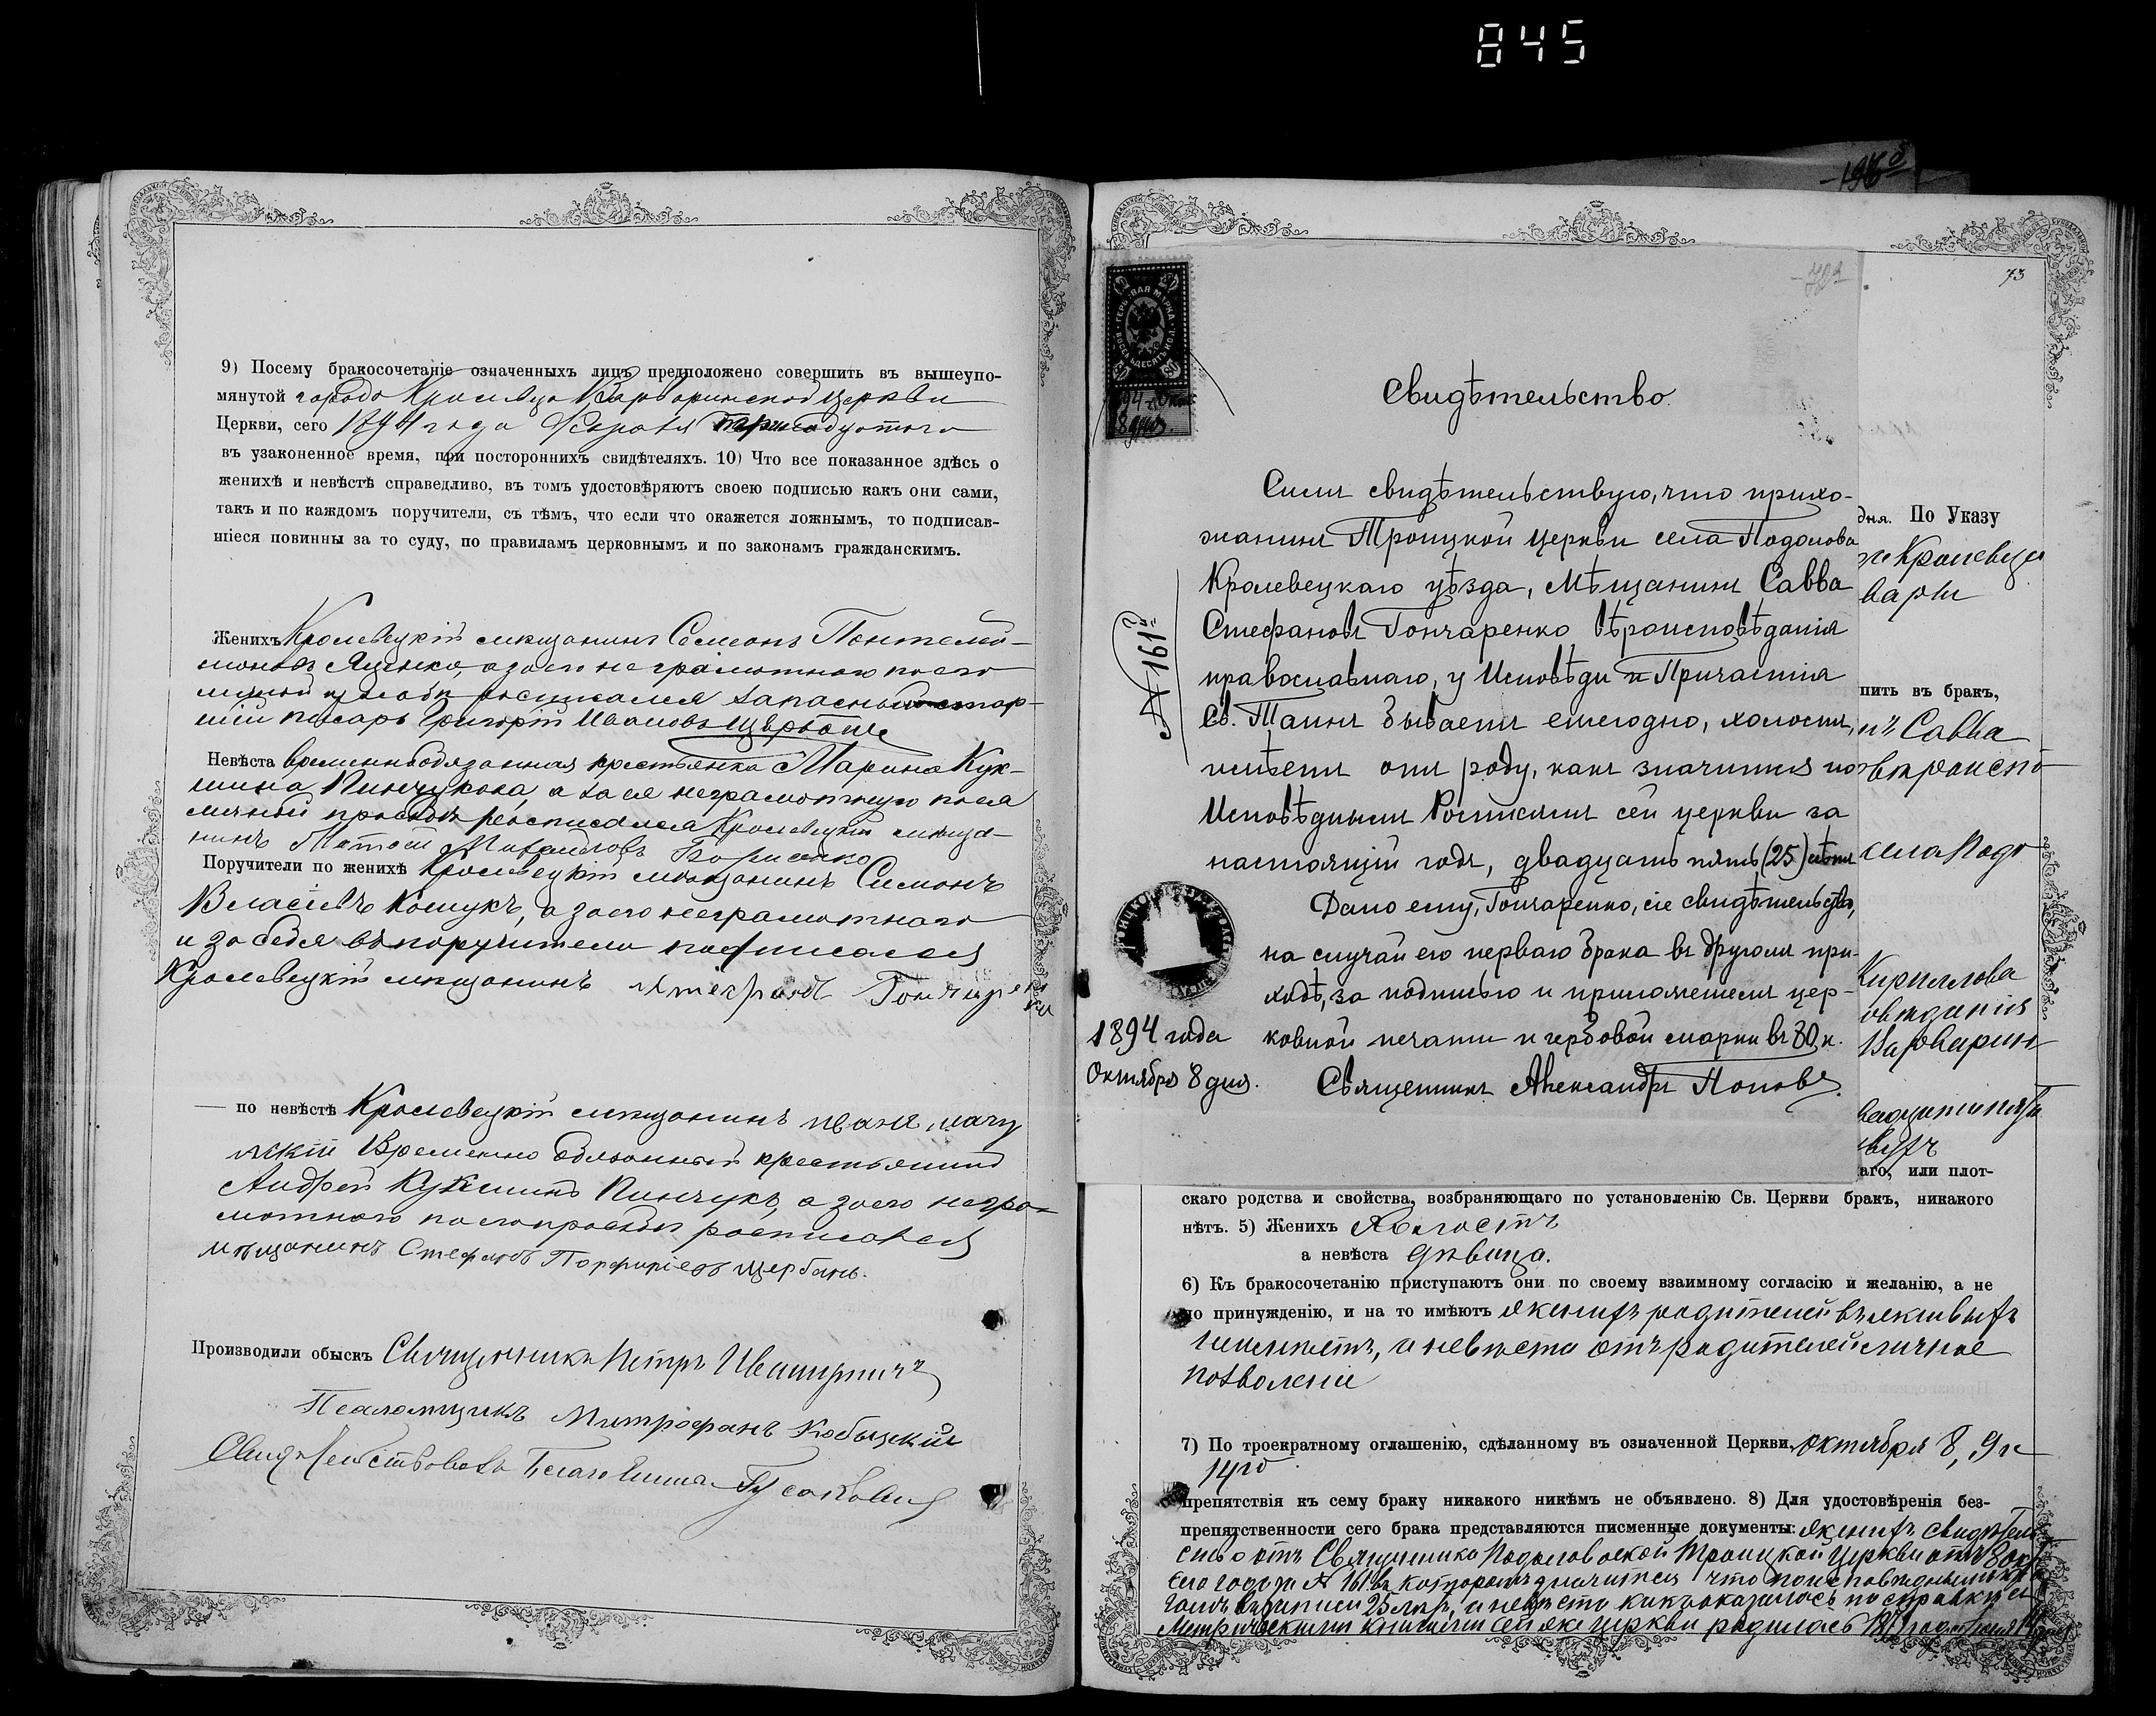 845
9) Посему бракосочетаніе означенныхъ лицъ предположено совершить въ вышеупо-
мянутой города Кролевца Варваринской церкви
Церкви, сего 1894 года Февраля тринадцатого
въ узаконенное время, при постороннихъ свидѣтеляхъ. 10) Что все показанное здѣсь о
женихѣ и невѣстѣ справедливо, въ томъ удостовѣряютъ своею подписью какъ они сами,
такъ и по каждомъ поручители, съ тѣмъ, что если что окажется ложнымъ, то подписав-
шіеся повинны за то суду, по правиламъ церковнымъ и по законамъ гражданскимъ.
Женихъ Кролевецкій мѣщанинъ Семеонъ Пантелей-
моновъ Яценко, а за его неграмотного по его
личной прозьбѣ росписался запасный стар-
шій писарь Григорій Ивановъ Щербань
Невѣста временнообязанная крестьянка Марина Кук-
Пинчукова, а за ея неграмотную по ея
личной прозьбѣ росписался Кролевецкій мѣща-
нинъ Матвей Михайловъ Борисенко
Поручители по женихѣ Кролевецкій мѣщанинъ Симонъ
Власіевъ Кошукъ, а за его неграмотнаго
и за себя въ поручители подписался
Кролевецкій мѣщанинъ Гончаренко
— по невѣстѣ Кролевецкій мѣщанинъ
Временно обязанный крестьянинъ
Андрей Пинчукъ, а за его негра-
мотнаго по его прозьбѣ росписался
мѣщанинъ Стефанъ Порфиріевъ Щербань.
Производили обыскъ Священникъ Петръ
Псаломщикъ Митрофанъ Кобыцкій
73
Свидѣтельство.
Симъ свидѣтельствую, что прихо-
жанинъ Троицкой церкви села Подолова
Кролевецкаго уѣзда, Мѣщанинъ Савва
Стефановъ Гончаренко вѣроисповѣданія
православнаго, у Исповѣди и Причастія
Св. Таинъ бываетъ ежегодно, холостъ,
имѣетъ отъ роду, какъ значится по
Исповѣднымъ Росписямъ сей церкви за
настоящій годъ, двадцать пять (25) лѣтъ
Дано ему, Гончаренко, сіе свидѣтельство,
на случай его перваго брака въ другомъ при-
ходѣ, за подписью и приложеніемъ цер-
ковной печати и гербовой марки въ 80 к.
Священникъ Александръ Поповъ.
№ 161й
1894 года
Октября 8 дня.
дня. По Указу
Кролевца
пить въ бракъ,
Савва
вѣроиспо-
села Подо
Кириллова
Варварин-
аго, или плот-
скаго родства и свойства, возбраняющаго по установленію Св. Церкви бракъ, никакого
нѣтъ. 5) Женихъ Холостъ
а невѣста дѣвица.
6) Къ бракосочетанію приступаютъ они по своему взаимному согласію и желанію, а не
по принужденію, и на то имѣютъ женихъ родителей въ живыхъ
неимѣетъ, а невѣста отъ родителей личное
позволеніе
7) По троекратному оглашенію, сдѣланному въ означенной Церкви, Октября 8, 9 и
14го
препятствія къ сему браку никакого никѣмъ не объявлено. 8) Для удостовѣренія без-
препятственности сего брака представляются писменные документы: женихъ свидѣтель-
ство отъ Священника Подоловской Троицкой Церкви отъ 8 окт
сего года за № 161 въ которомъ значится что по исповѣднымъ
25 лѣтъ, а невѣста какъ оказалось по справкѣ съ
Метрическими книгами сей же церкви родилась